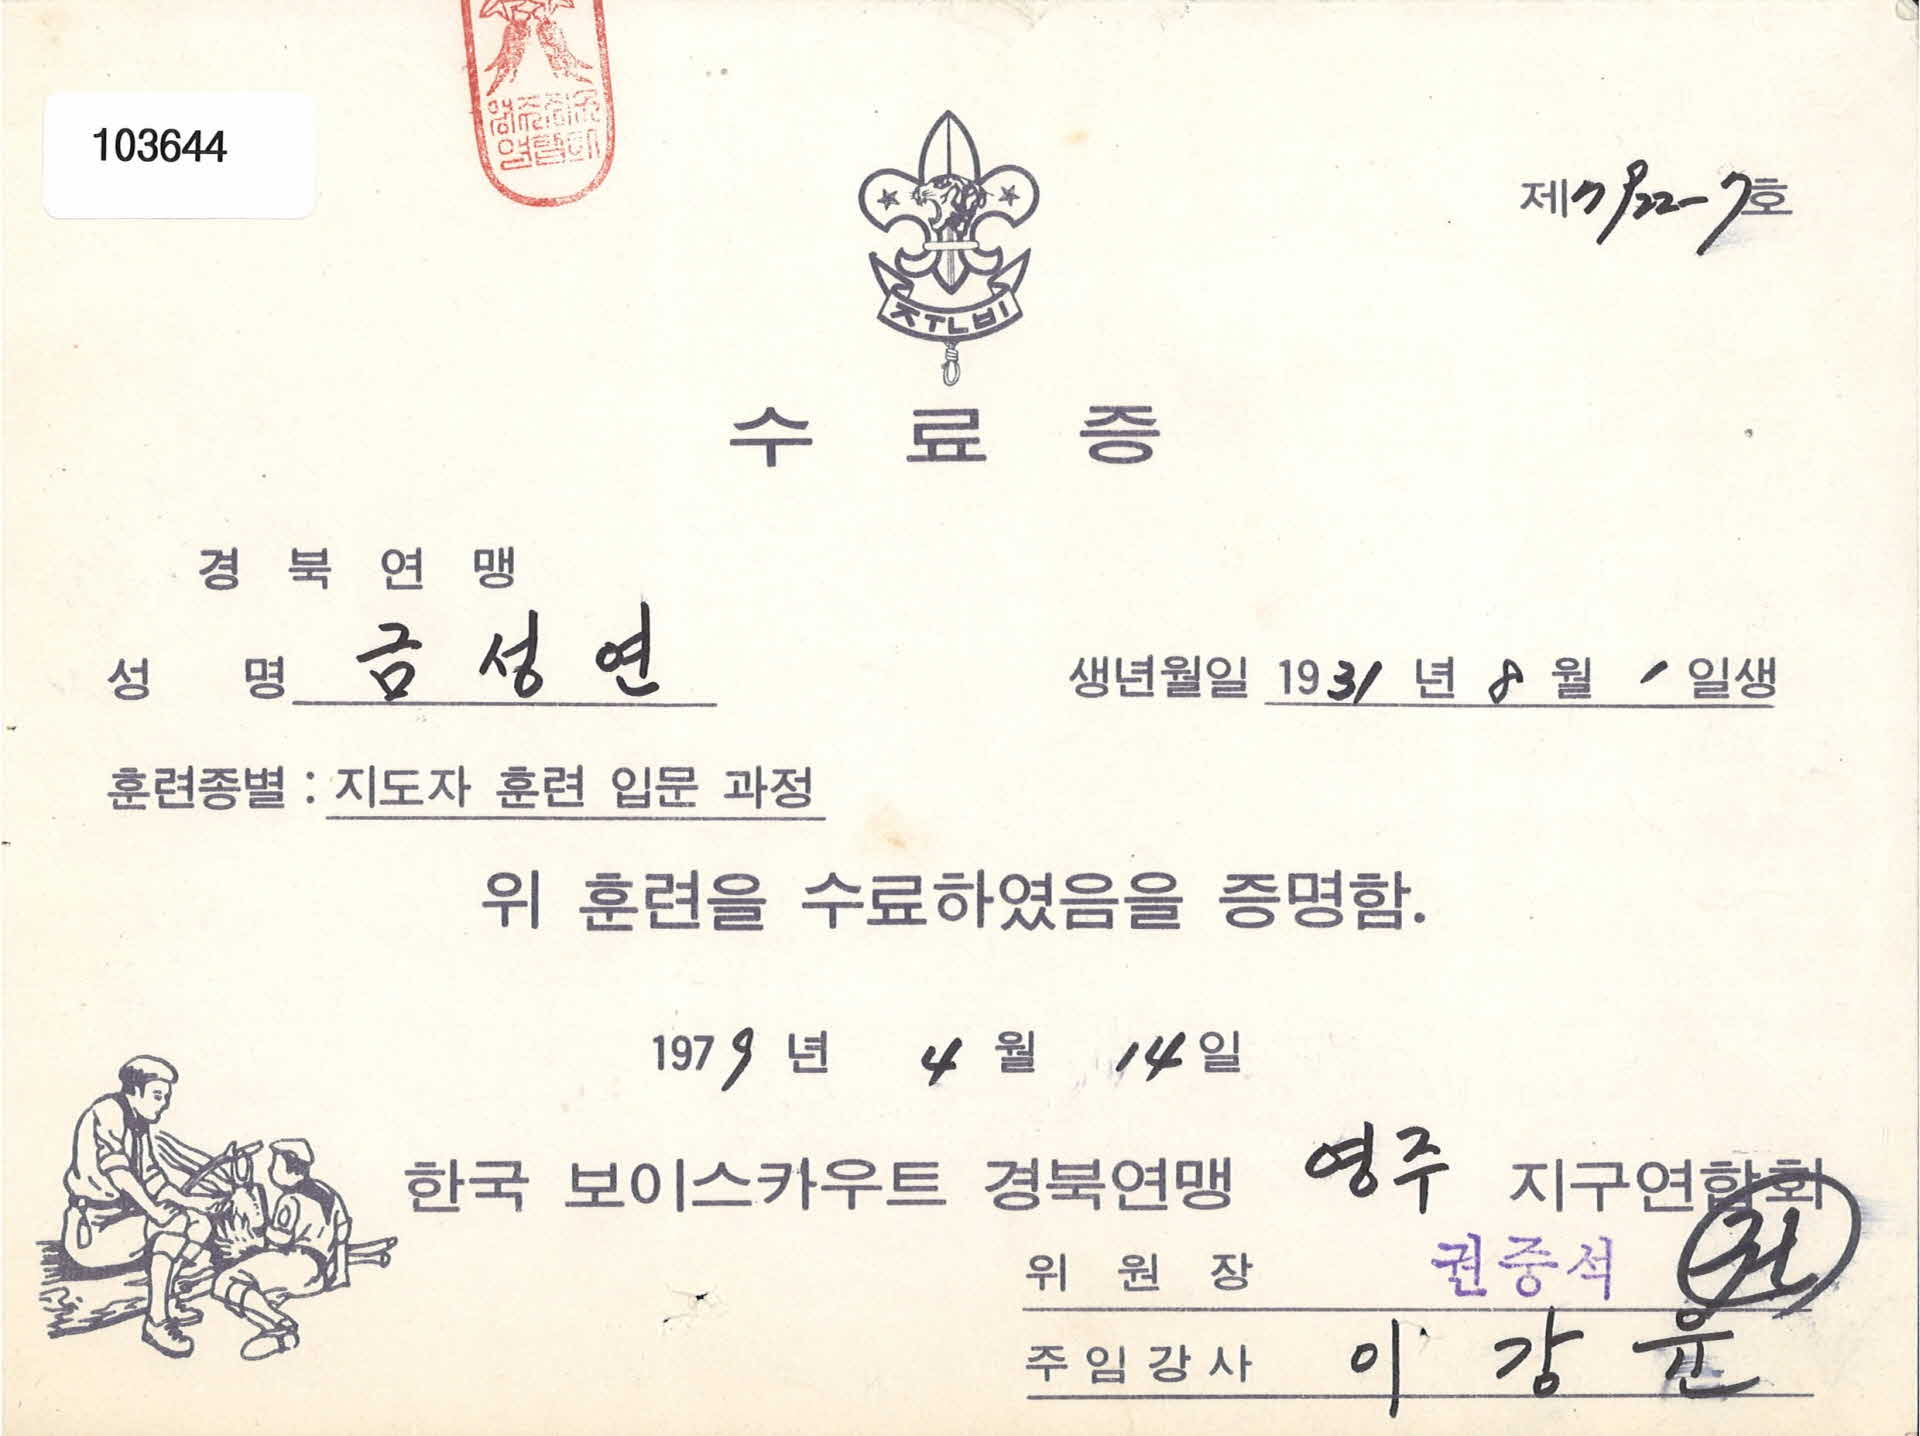 103644
제7922-7호
ㅈㅜㄴㅂㅣ
수 료 증
경 북 연 맹
성 명 금 성 연
생년월일 1931 년 8 월 1 일생
훈련종별 : 지도자 훈련 입문 과정
위 훈련을 수료하였음을 증명함.
1979 년 4 월 14 일
한국 보이스카우트 경북연맹 영주 지구연합회
위 원 장 권중석
주임강사 이 강 윤